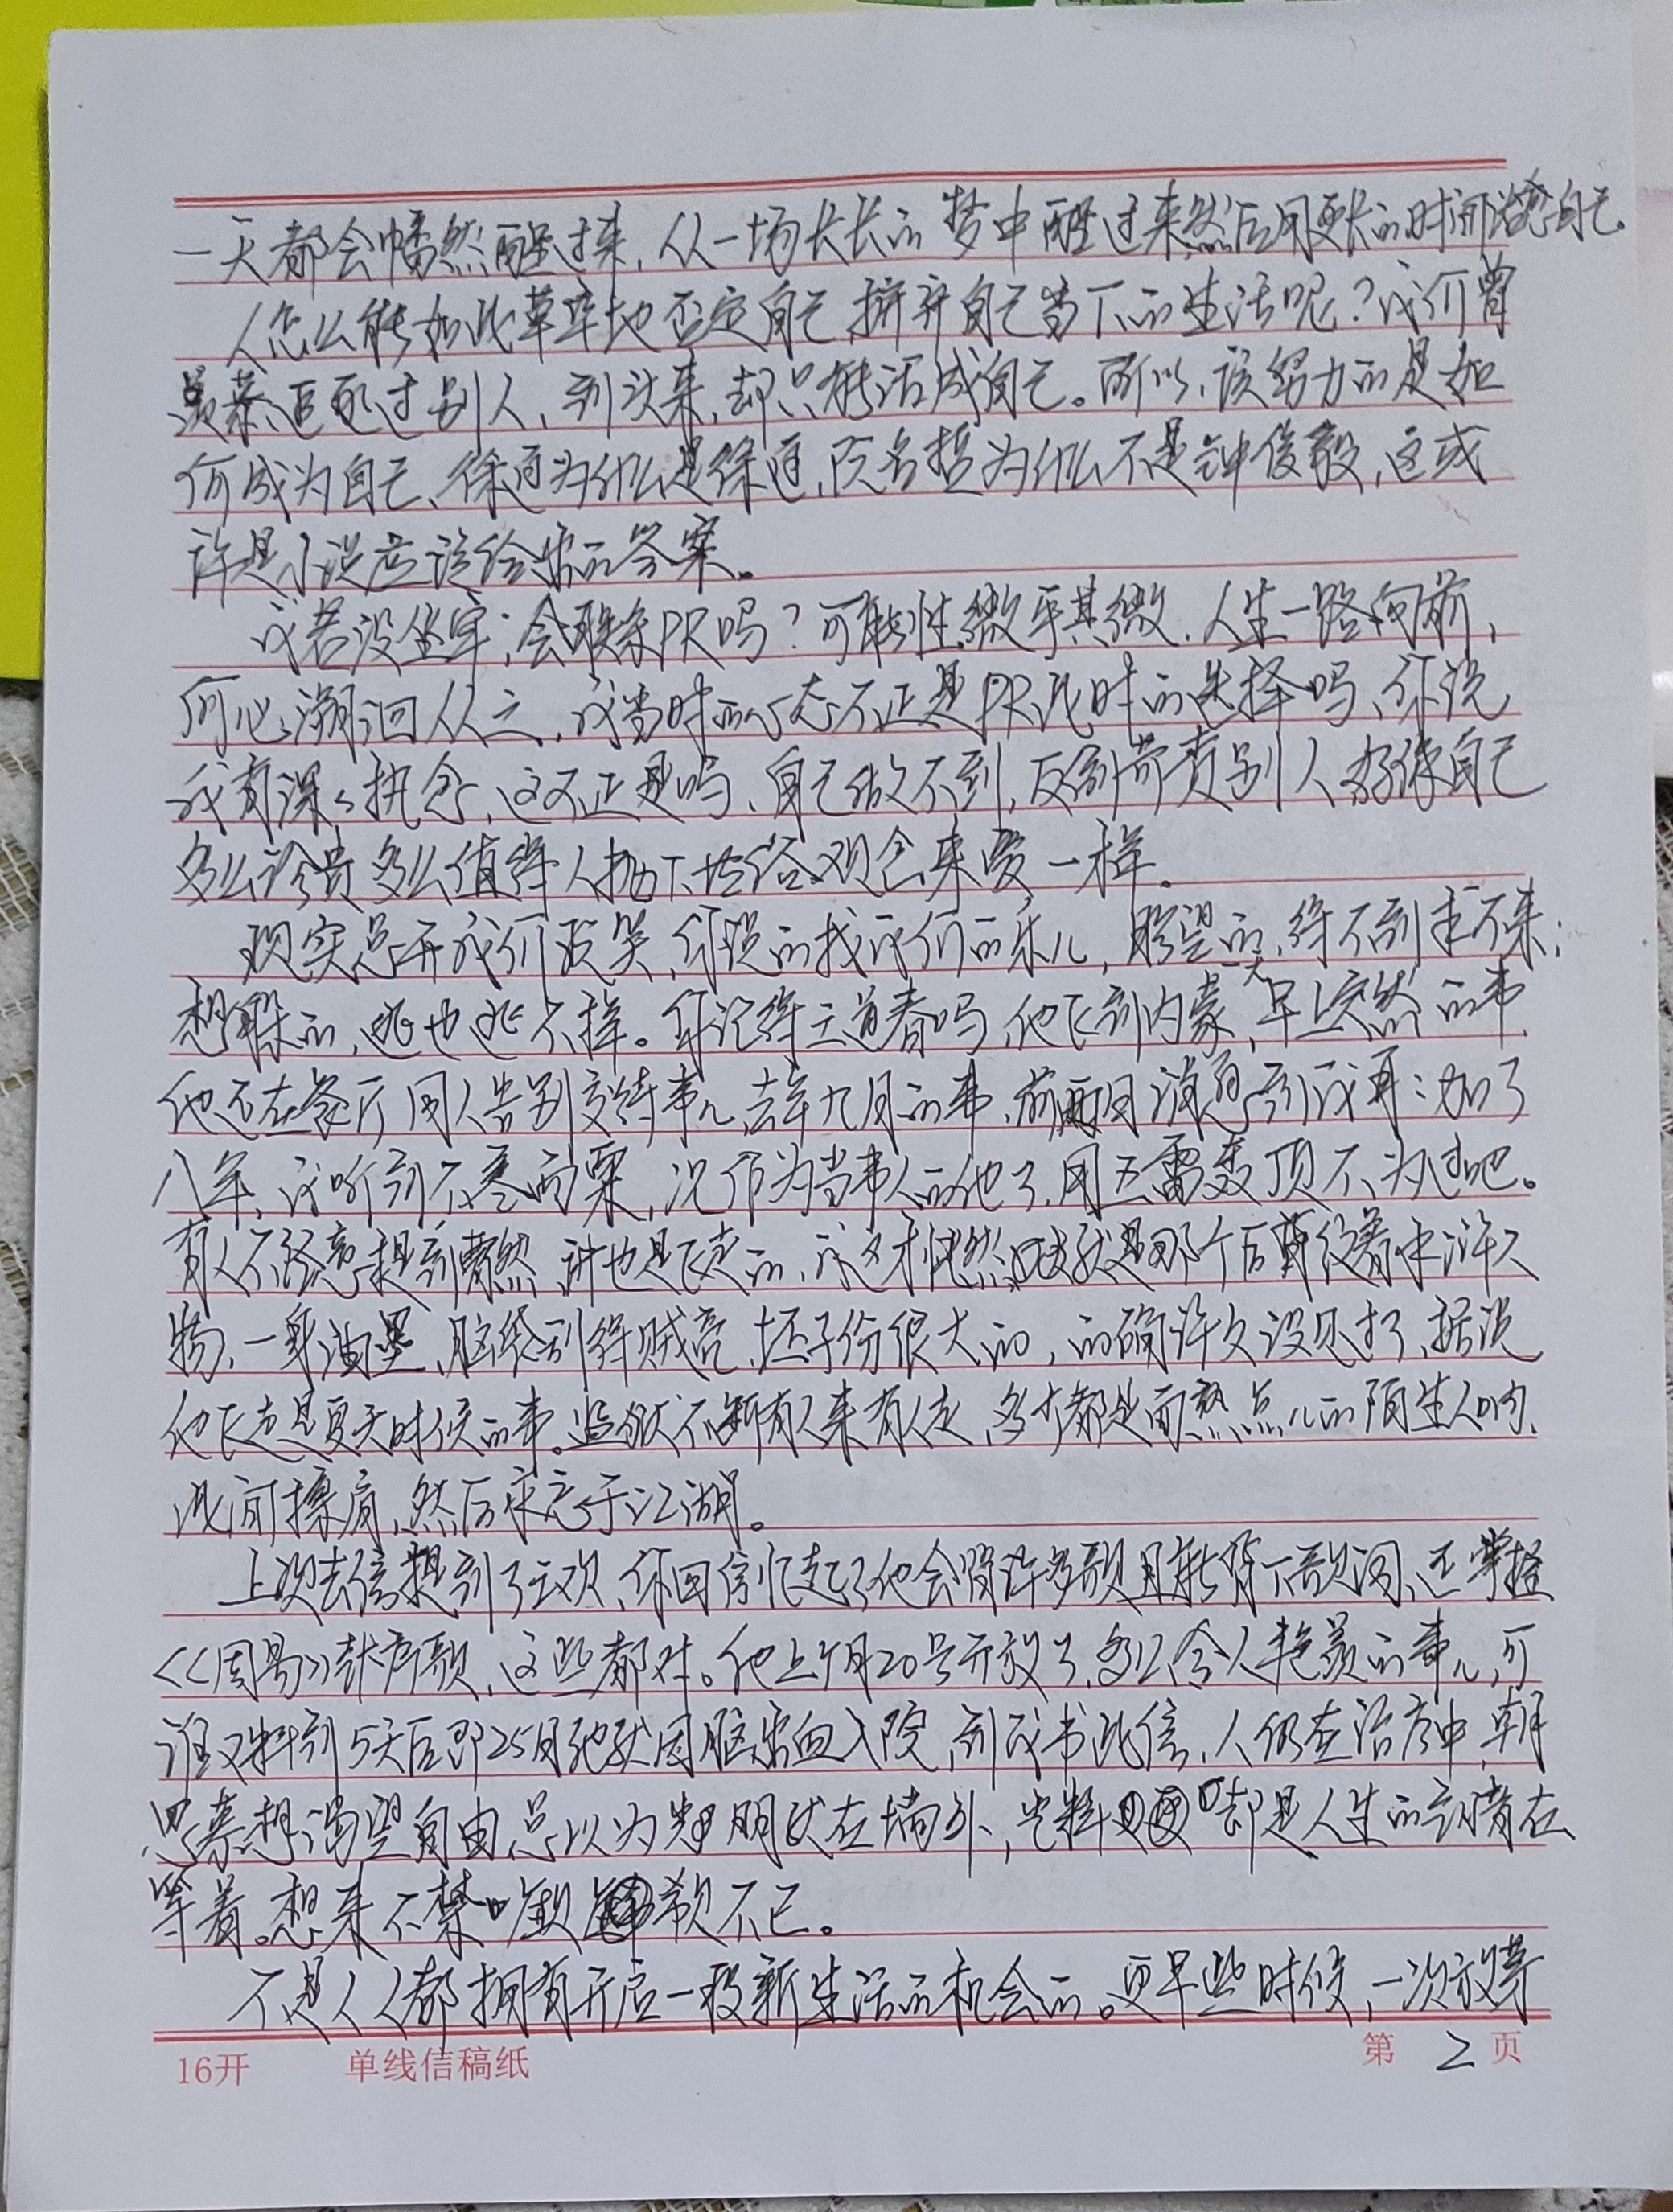 一天都会幡然醒过来,从一场长长的梦中醒过来然后用更长的时间治愈自己
人怎么能如此草率地否定自己摒弃自己当下的生活呢?我们曾
羡慕、匹配过别人,到头来,却只能活成自己。所以,该努力的是如
何成为自己、徐通为什么是徐通,阮名哲为什么不是钟俊毅,这或
许是小说应该给出的答案。
我若没坐牢,会联系PR吗?可能性微乎其微.人生一路向前,
何必溯洄从之,我当时的心态不正是PR此时的选择吗、你说
我有深深执念,这不正是吗、自己做不到,反倒苛责别人好像自己
多么珍贵多么值得人抛下世俗观念来爱一样。
现实总开我们玩笑,你说的找我们的乐儿,盼望的,得不到求不来;
想躲的,逃也逃不掉。你记得王道春吗,他飞到内蒙,一天早上突然的事
他还在餐厅同人告别交待事儿,去年九月的事、前两日消息到我耳:加了
八年,我听到不寒而栗,况作为当事人的他了.用五雷轰顶不为过吧。
有人不经意提到 然,讲也是飞走的,我这才恍然 就是那个后背纹着水浒人
物,一身油墨、脑袋刮得贼亮,坯子份很大的,的确许久没见过了,据说
他飞走是夏天时候的事。监狱不断有人来有人走,多少都是面熟点儿的陌生人呐,
此间擦肩,然后永忘于江湖。
上次去信提到了王欢、你回信忆起了他会唱许多歌且能背下歌词、还掌握
<<周易>>卦序歌,这些都对。他上个月20号开放了,多么令人艳羡的事儿,可
谁又料到5天后即25日他就因脑出血入院,到我书此信,人仍在治疗中,朝
思慕想渴望自由总以为光明就在墙外,岂料 却是人生的至暗在
等着。想来不禁唏嘘 不已。
不是人人都拥有开启一段新生活的机会的。更早些时候,一次放荐
16开 单线信稿纸 第 2 页